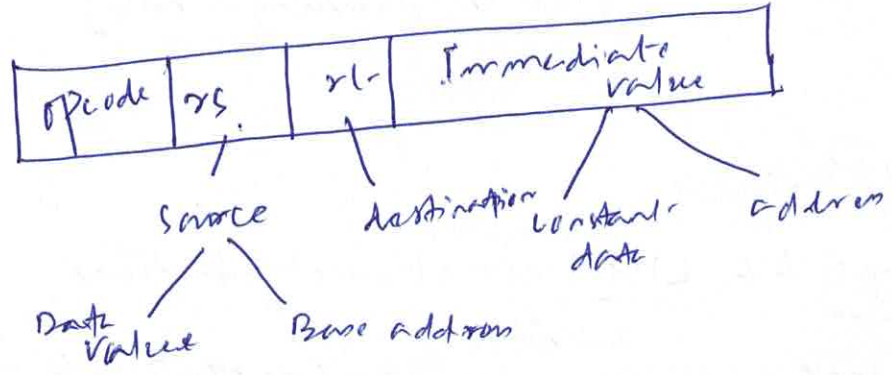 opcode rs rt Immediate
value
Source destination constant address
data
Data Base address
value